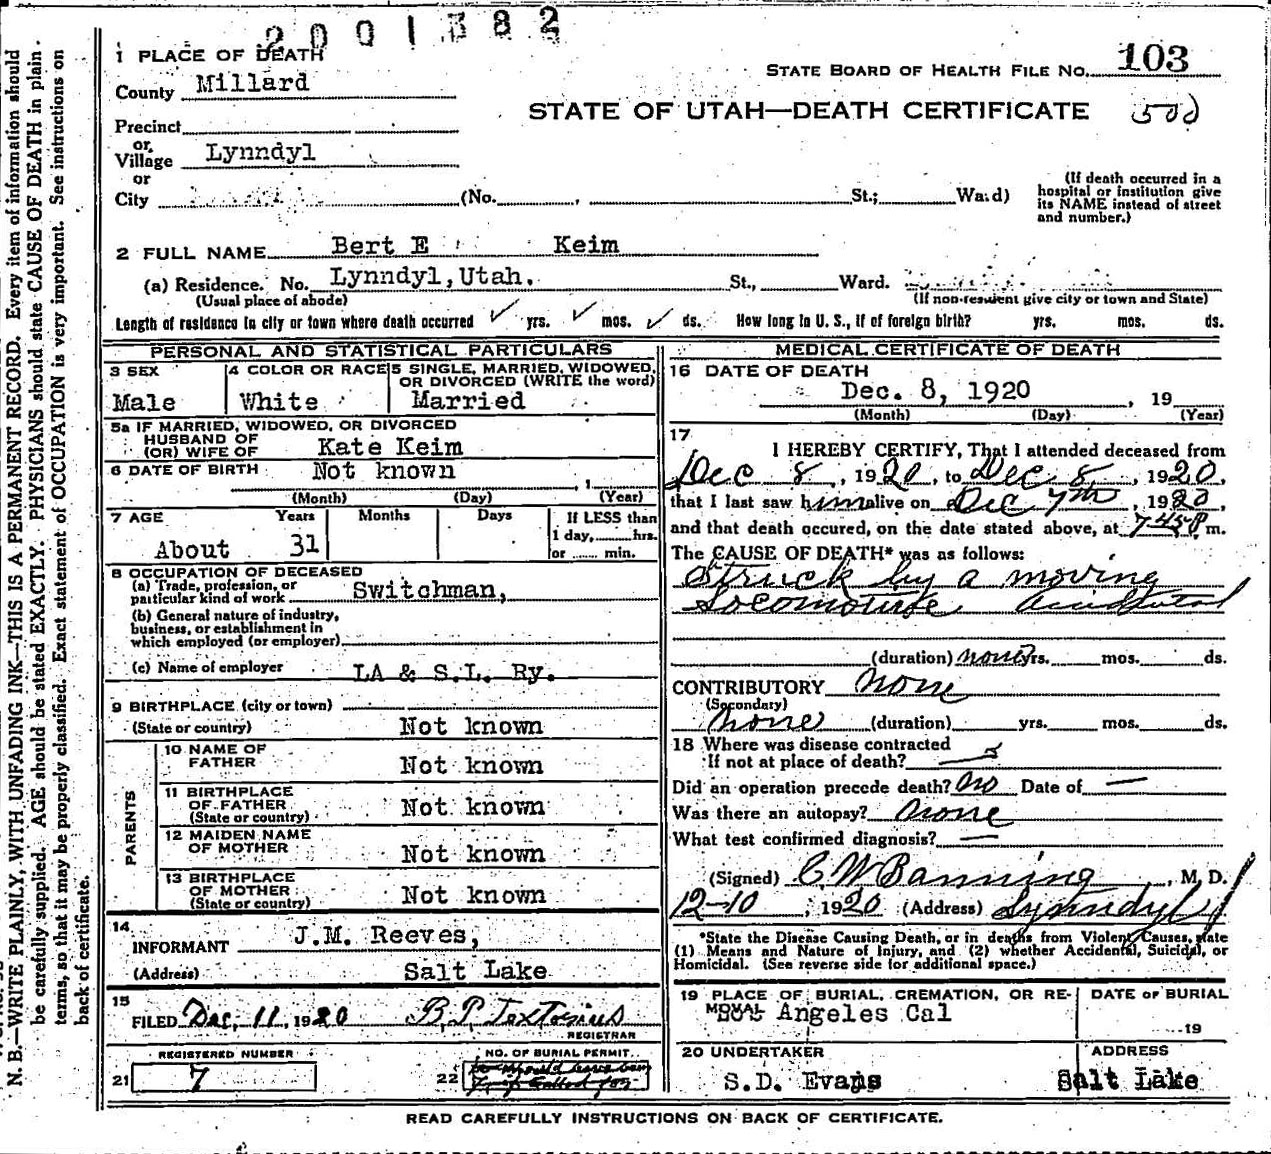 2001382
1 PLACE OF DEATH
County Millard
STATE BOARD OF HEALTH FILE NO. 103
STATE OF UTAH—DEATH CERTIFICATE 500
Precinct
or
Village Lynndyl
or
City (No. , St.; Ward)
(If death occurred in a
hospital or institution give
its NAME instead of street
and number.)
2 FULL NAME Bert E Keim
(a) Residence. No. Lynndyl, Utah. St., Ward.
(Usual place of abode) (If non-resident give city or town and State)
Length of residence in city or town where death occurred ✓ yrs. ✓ mos. ✓ ds. How long in U. S., if of foreign birth? yrs. mos. ds.
PERSONAL AND STATISTICAL PARTICULARS
3 SEX
Male
4 COLOR OR RACE
White
5 SINGLE, MARRIED, WIDOWED,
OR DIVORCED (WRITE the word)
Married
5a IF MARRIED, WIDOWED, OR DIVORCED
HUSBAND OF
(OR) WIFE OF Kate Keim
6 DATE OF BIRTH Not known
(Month) (Day) (Year)
7 AGE Years Months Days If LESS than
1 day, hrs.
or min.
About 31
8 OCCUPATION OF DECEASED
(a) Trade, profession, or
particular kind of work Switchman,
(b) General nature of industry,
business, or establishment in
which employed (or employer)
(c) Name of employer LA & S.L. Ry.
9 BIRTHPLACE (city or town)
(State or country) Not known
PARENTS
10 NAME OF
FATHER Not known
11 BIRTHPLACE
OF FATHER
(State or country) Not known
12 MAIDEN NAME
OF MOTHER Not known
13 BIRTHPLACE
OF MOTHER
(State or country) Not known
14
INFORMANT J.M. Reeves,
(Address) Salt Lake
15
FILED Dec. 11, 1920 B. P. Textorius
REGISTRAR
REGISTERED NUMBER
21 7
NO. OF BURIAL PERMIT
22
MEDICAL CERTIFICATE OF DEATH
16 DATE OF DEATH
Dec. 8, 1920 , 19
(Month) (Day) (Year)
17
I HEREBY CERTIFY, That I attended deceased from
Dec 8, 1920, to Dec 8, 1920,
that I last saw him alive on Dec 7th, 1920
and that death occured, on the date stated above, at 7 45 P m.
The CAUSE OF DEATH* was as follows:
Struck by a moving
Locomotive Accidental
(duration) none yrs. mos. ds.
CONTRIBUTORY none
(Secondary)
none (duration) yrs. mos. ds.
18 Where was disease contracted
If not at place of death?
Did an operation precede death? No Date of —
Was there an autopsy? none
What test confirmed diagnosis? —
(Signed) C W Banning, M. D.
12-10, 1920 (Address) Lynndyl
*State the Disease Causing Death, or in deaths from Violent Causes, state
(1) Means and Nature of Injury, and (2) whether Accidental, Suicidal, or
Homicidal. (See reverse side for additional space.)
19 PLACE OF BURIAL, CREMATION, OR RE-
MOVAL Los Angeles Cal
DATE OF BURIAL
19
20 UNDERTAKER
S.D. Evans
ADDRESS
Salt Lake
READ CAREFULLY INSTRUCTIONS ON BACK OF CERTIFICATE.
N. B.—WRITE PLAINLY, WITH UNFADING INK—THIS IS A PERMANENT RECORD. Every item of information should
be carefully supplied. AGE should be stated EXACTLY. PHYSICIANS should state CAUSE OF DEATH in plain
terms, so that it may be properly classified. Exact statement of OCCUPATION is very important. See instructions on
back of certificate.